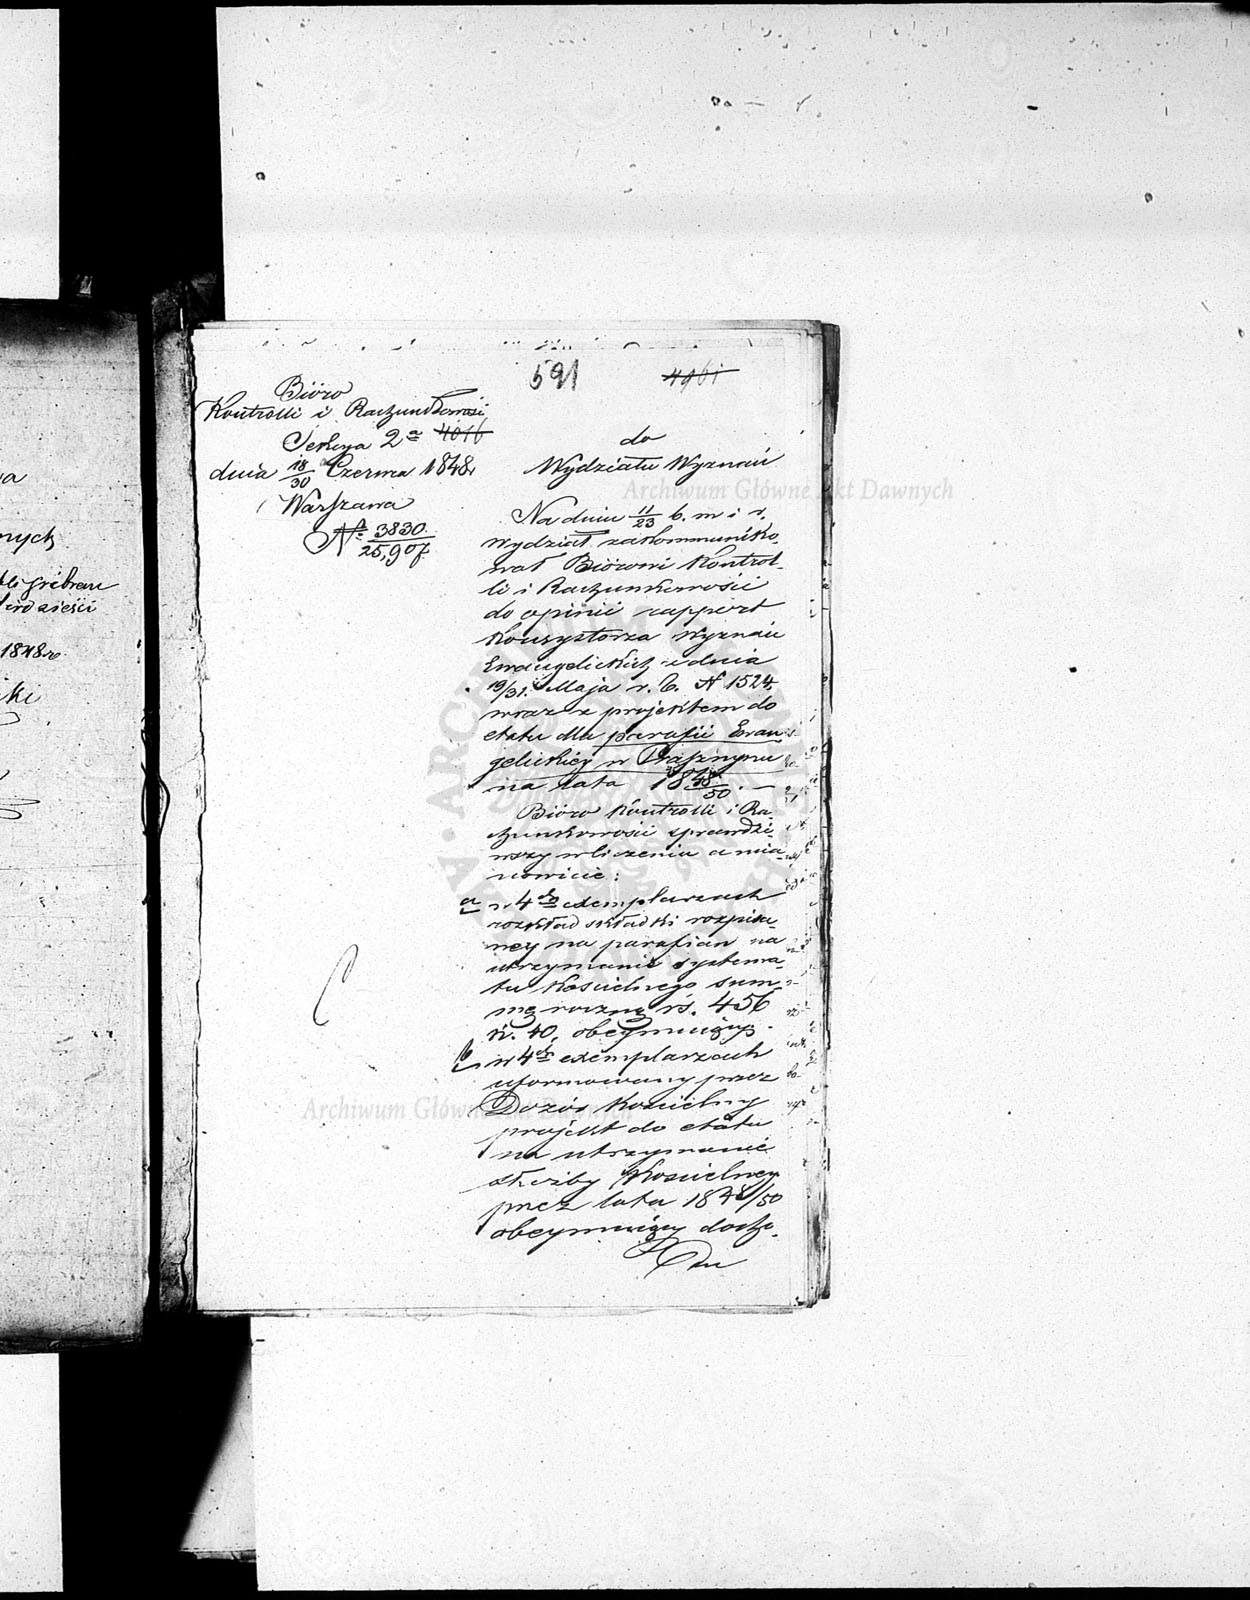 591 4961
Bióro
Kontrolli i Rachunkowości
Sekcya 2a 4016
dnia 18/30 Czerwca 1848r
Warszawa
N: 3830/25,907
do
Wydziału Wyznań
Na dniu 11/23 b. m i r.
Wydział zakommuniko-
wał Biórowi Kontrol-
li i Rachunkowości
do opinii rapport
Konsystorza Wyznań
Ewangelickich z dnia
19/31 Maja r. b. N 1524,
wraz z projektem do
etatu dla parafii Ewan-
gelickiéy w Przasznyszu
na lata 1848/50. —
Bióro Kontrolli i Ra-
chunkowości sprawdzi-
wszy wliczenia a mia-
nowicie:
a w 4ch exemplarzach
rozkład składki rozpisa-
néy na parafian na
utrzymanie systema-
tu Kościelnego, sum-
mę roczną rs. 456
k. 40, obeymuiący.
b, w 4ch exemplarzach
uformowany przez
Dozór Kościelny
projekt do etatu
na utrzymanie
służby Kościelney
przez lata 1848/50
obeymuiący docho-
du
ych
śrebrem
dzieści
1848r
ki
Archiwum Główne Akt Dawnych
Archiwum Główne Akt Dawnych